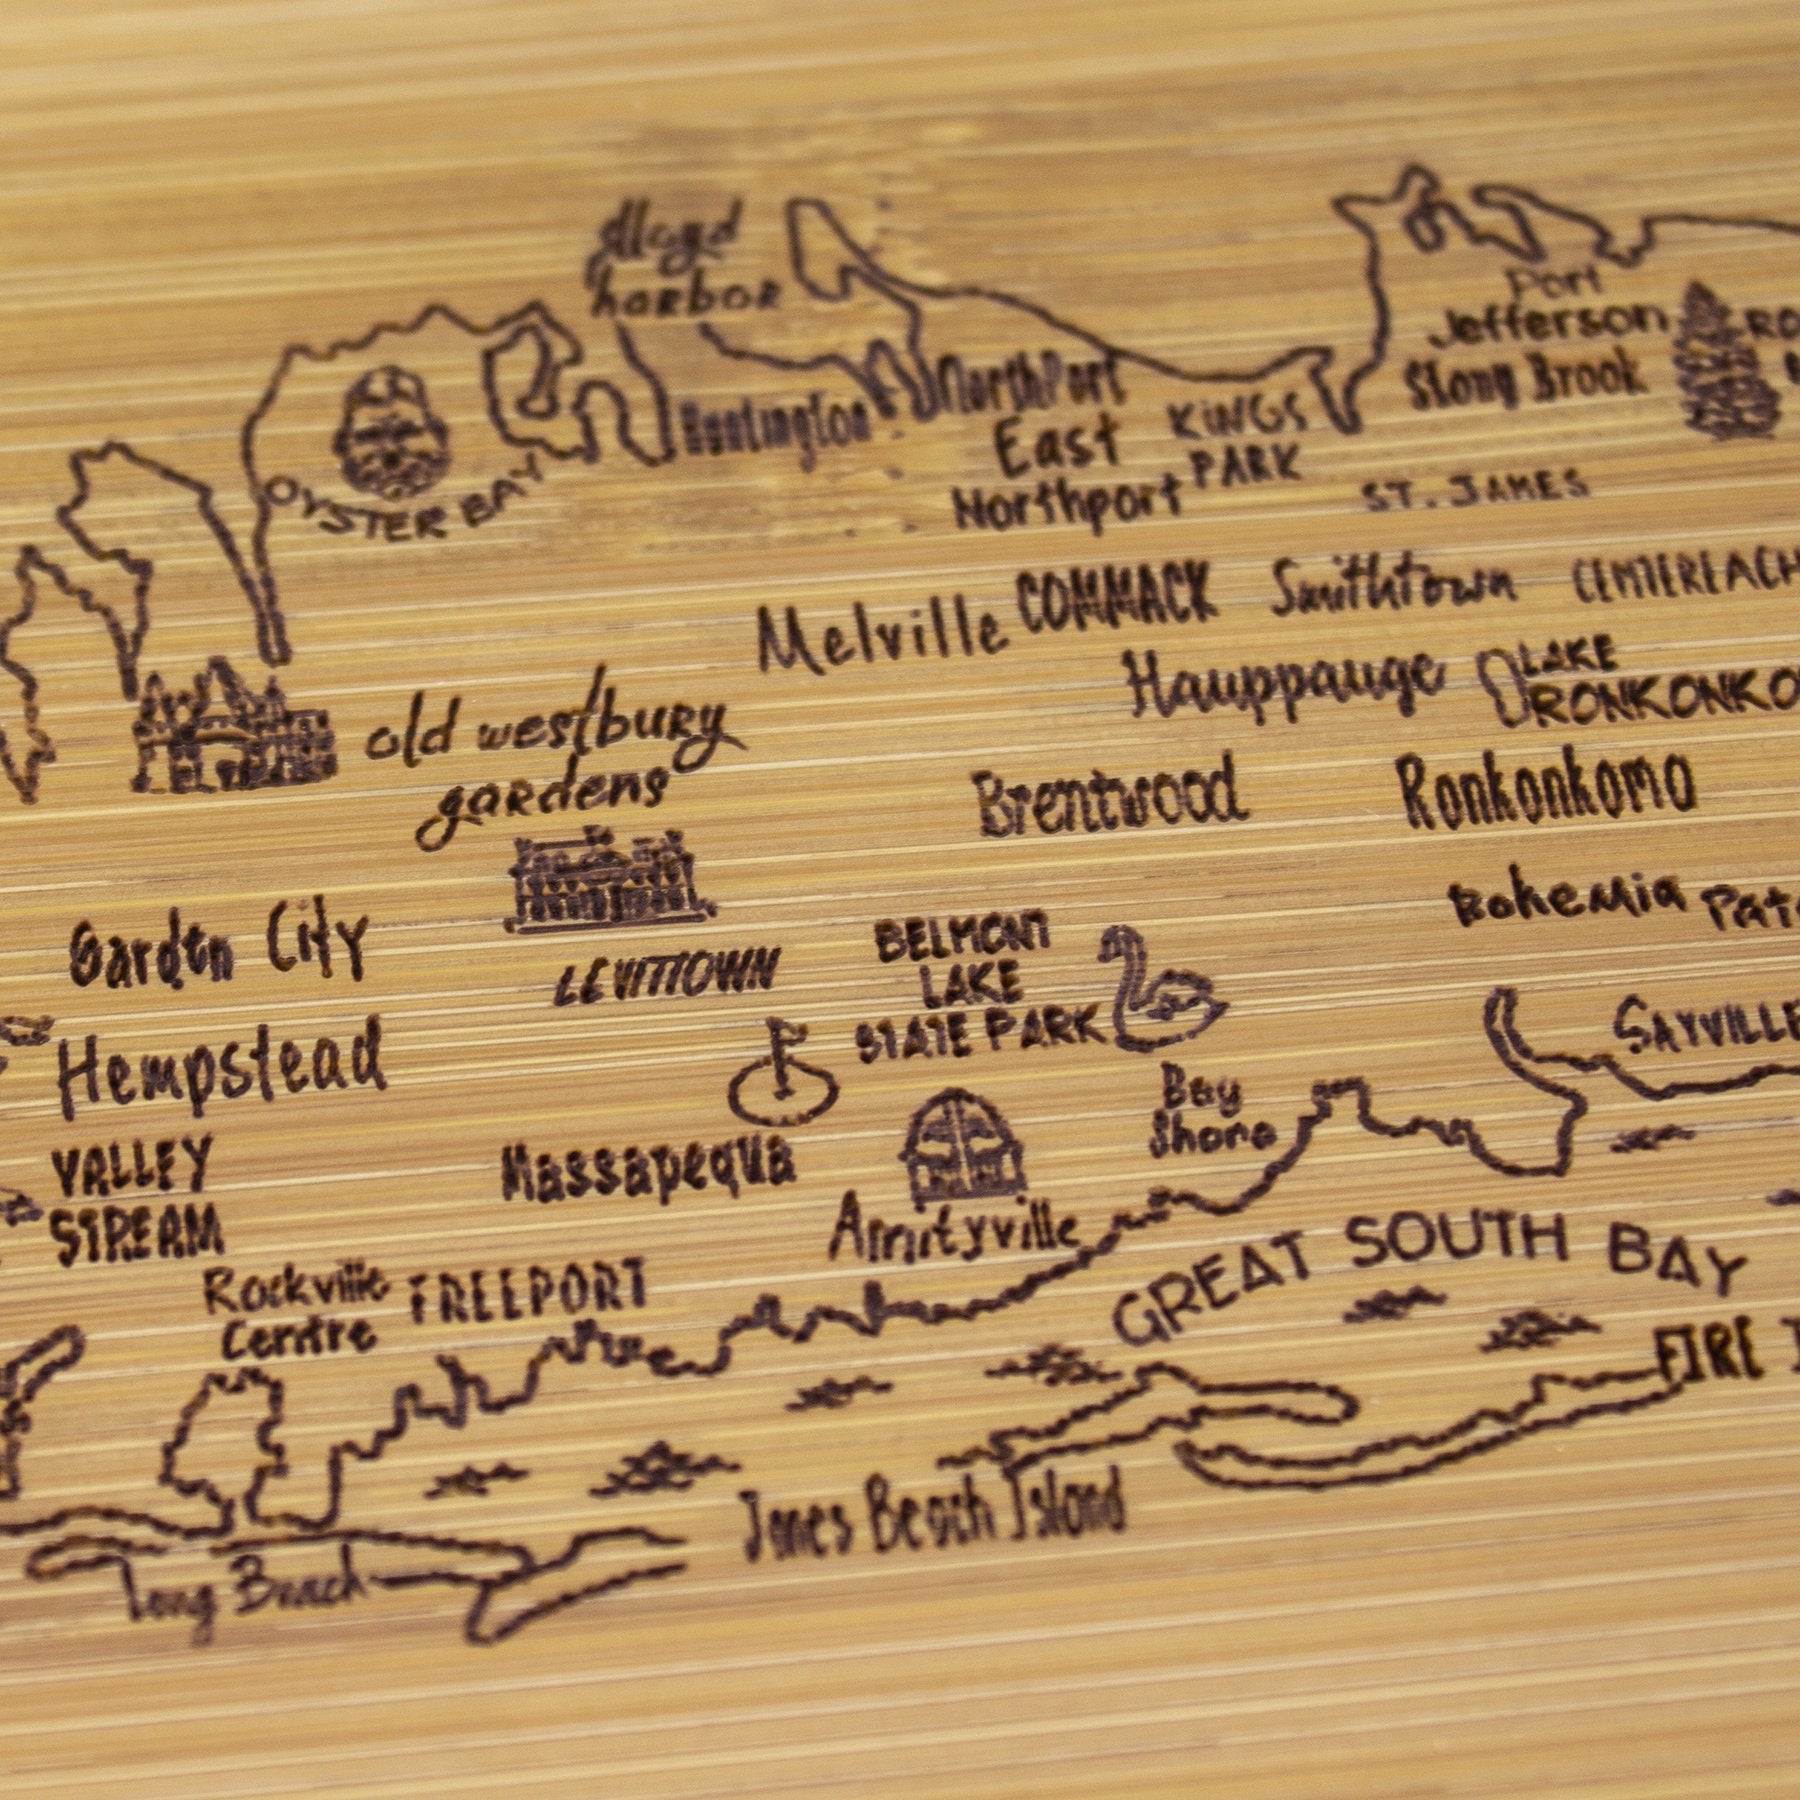 Lloyd
harbor
Port
Jefferson
Stony Brook
Huntington
NorthPort
East
Northport
KINGS
PARK
OYSTER BAY
ST. JAMES
Melville
COMMACK
Smithtown
CENTEREACH
Hauppauge
LAKE
RONKONKO
old westbury
gardens
Brentwood
Ronkonkomo
Garden City
LEVITTOWN
BELMONT
LAKE
STATE PARK
Bohemia
Hempstead
SAYVILLE
Bay
Shore
VALLEY
STREAM
Massapequa
Amityville
GREAT SOUTH BAY
Rockville
Centre
FREEPORT
FIRE I
Jones Beach Island
Long Beach